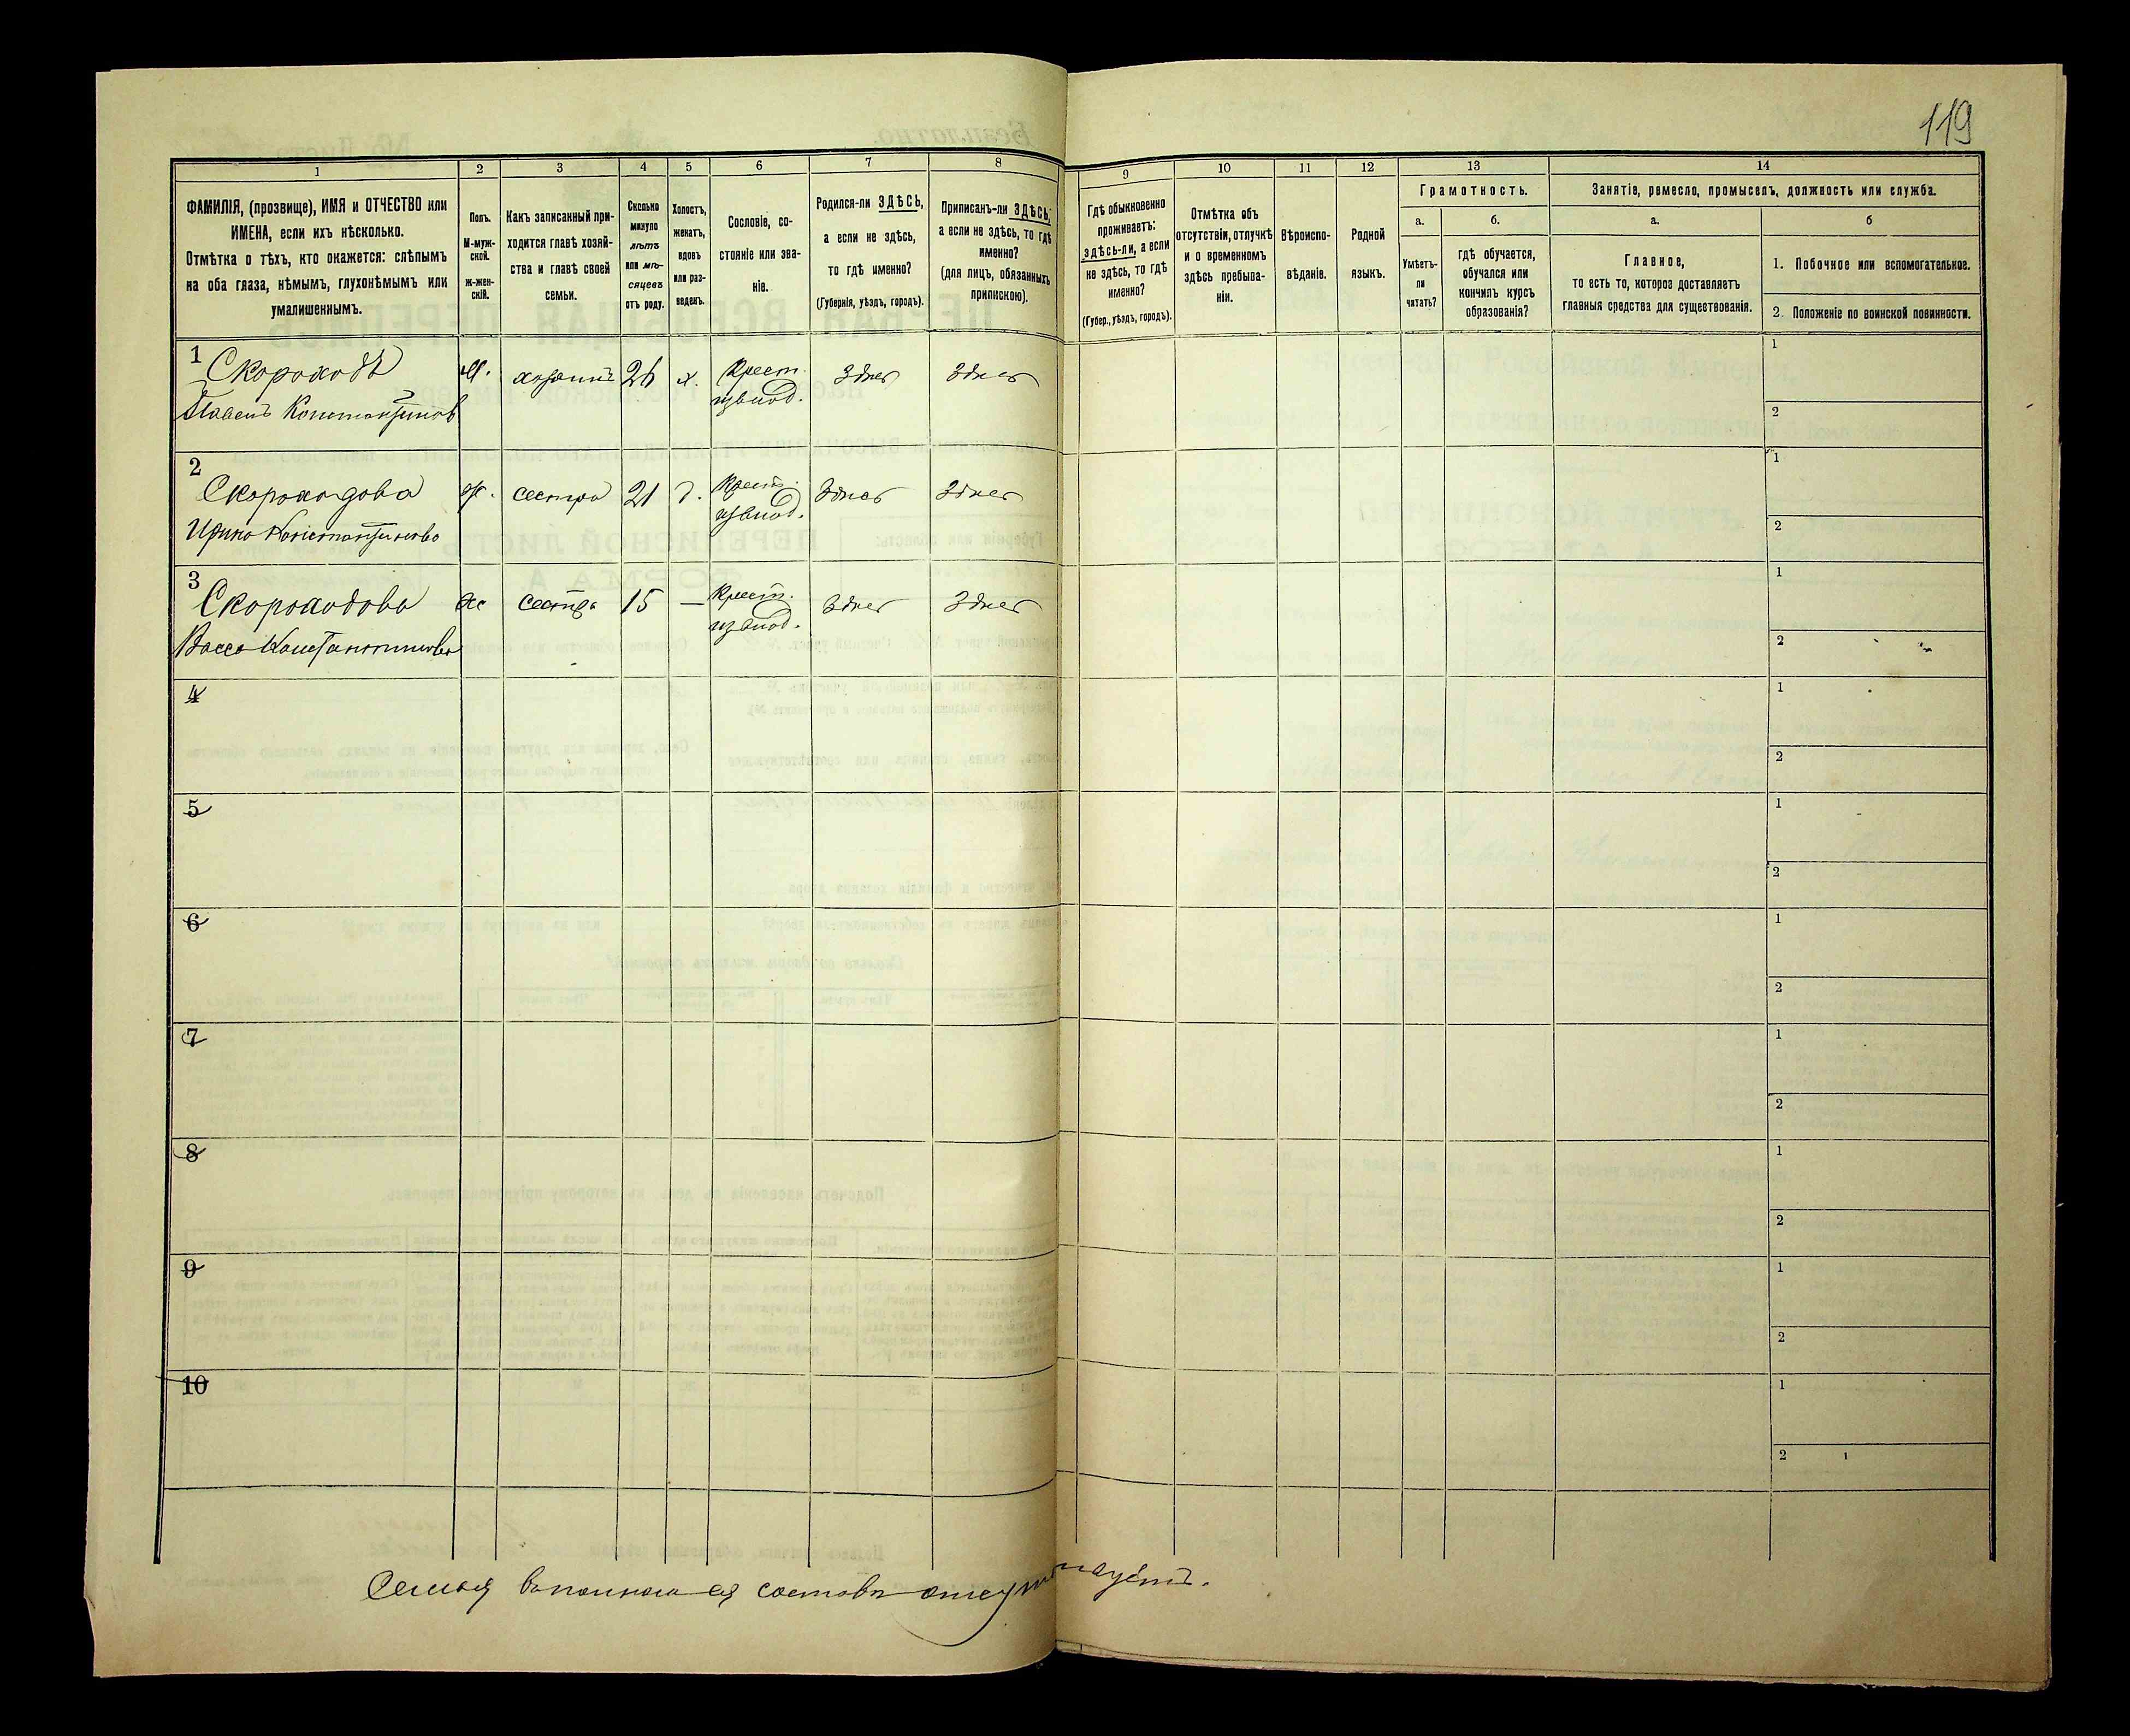 119
1
2
3
4
5
6
7
8
9
10
11
12
13
14
ФАМИЛІЯ, (прозвище), ИМЯ и ОТЧЕСТВО или
ИМЕНА, если ихъ нѣсколько.
Отмѣтка о тѣхъ, кто окажется: слѣпымъ
на оба глаза, нѣмымъ, глухонѣмымъ или
умалишеннымъ.
Полъ.
М-муж-
ской.
Ж-жен-
скій.
Какъ записанный при-
ходится главѣ хозяй-
ства и главѣ своей
семьи.
Сколько
минуло
лѣтъ
или мѣ-
сяцевъ
отъ роду.
Холостъ,
женатъ,
вдовъ
или раз-
веденъ.
Сословіе, со-
стояніе или зва-
ніе.
Родился-ли ЗДѢСЬ,
а если не здѣсь,
то гдѣ именно?
(Губернія, уѣздъ, городъ).
Приписанъ-ли ЗДѢСЬ,
а если не здѣсь, то гдѣ
именно?
(для лицъ, обязанныхъ
припискою).
Гдѣ обыкновенно
проживаетъ:
здѣсь-ли, а если
не здѣсь, то гдѣ
именно?
(Губер., уѣздъ, городъ).
Отмѣтка объ
отсутствіи, отлучкѣ
и о временномъ
здѣсь пребыва-
ніи.
Вѣроиспо-
вѣданіе.
Родной
языкъ.
Грамотность.
а.
б.
Умѣетъ-
ли
читать?
гдѣ обучается,
обучался или
кончилъ курсъ
образованія?
Занятіе, ремесло, промыселъ, должность или служба.
а.
б
Главное,
то есть то, которое доставляетъ
главныя средства для существованія.
1. Побочное или вспомогательное.
2. Положеніе по воинской повинности.
1 Скороходъ м. хозяинъ 26 х. Крест. Здѣсь Здѣсь 1
Павелъ Константиновъ из влад. 2
2 Скороходова ж. сестра 21 д. Крест. Здѣсь Здѣсь 1
Ирина Константинова из влад. 2
3 Скороходова ж сестра 15 — Крест. Здѣсь Здѣсь 1
Васса Константинова из влад. 2
4 1
2
5 1
2
6 1
2
7 1
2
8 1
2
9 1
2
10 1
2
Семья в полном ея составѣ отсутствуетъ.